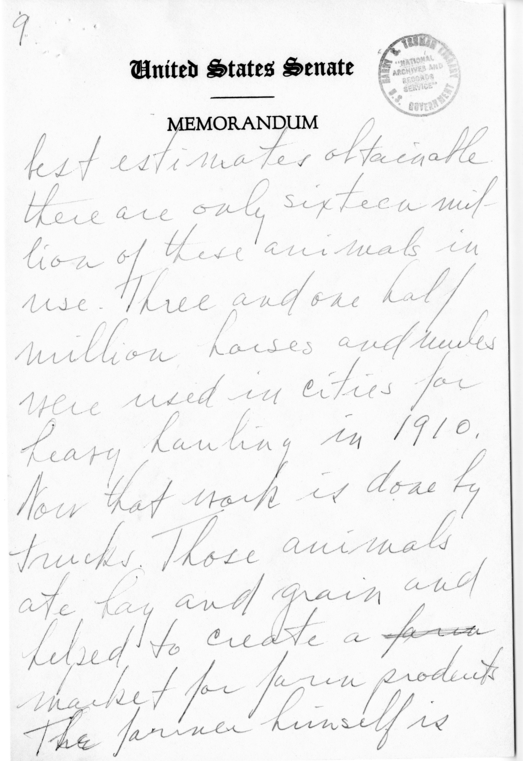 9.
United States Senate
MEMORANDUM
HARRY S. TRUMAN LIBRARY
"NATIONAL
ARCHIVES AND
RECORDS
SERVICE"
U.S. GOVERNMENT
best estimates obtainable
there are only sixteen mil-
lion of these animals in
use. Three and one half
million horses and mules
were used in cities for
heavy hauling in 1910.
Now that work is done by
trucks. Those animals
ate hay and grain and
helped to create a farm
market for farm products
The farmer himself is